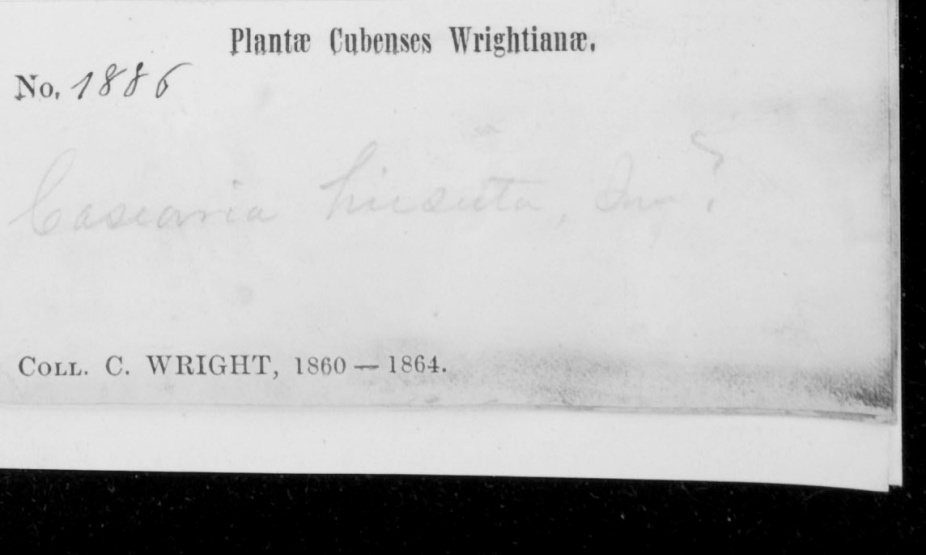 Plantæ Cubenses Wrightianæ.
No. 1886
Casearia hirsuta, Sw?
Coll. C. WRIGHT, 1860 — 1864.